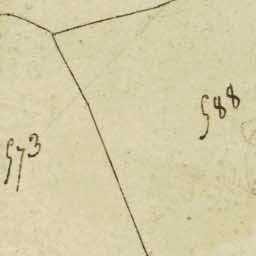 588
573